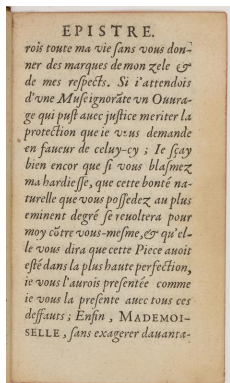 EPISTRE.
rois toute ma vie ſans vous don-
ner des marques de mon zele &
de mes reſpects. Si i'attendois
d'vne Muſe ignorãte vn Ouvra-
ge qui puſt avec juſtice meriter la
protection que ie vous demande
en faueur de celuy-cy ; Ie ſçay
bien encor que ſi vous blaſmez
ma hardieſſe, que cette bonté na-
turelle que vous poſſedez au plus
eminent degré ſe reuoltera pour
moy cõtre vous-meſme, & qu'el-
le vous dira que cette Piece auoit
eſté dans la plus haute perfection,
ie vous l'aurois preſentée comme
ie vous la preſente auec tous ces
deffauts ; Enfin, MADEMOI-
SELLE, ſans exagerer dauanta-